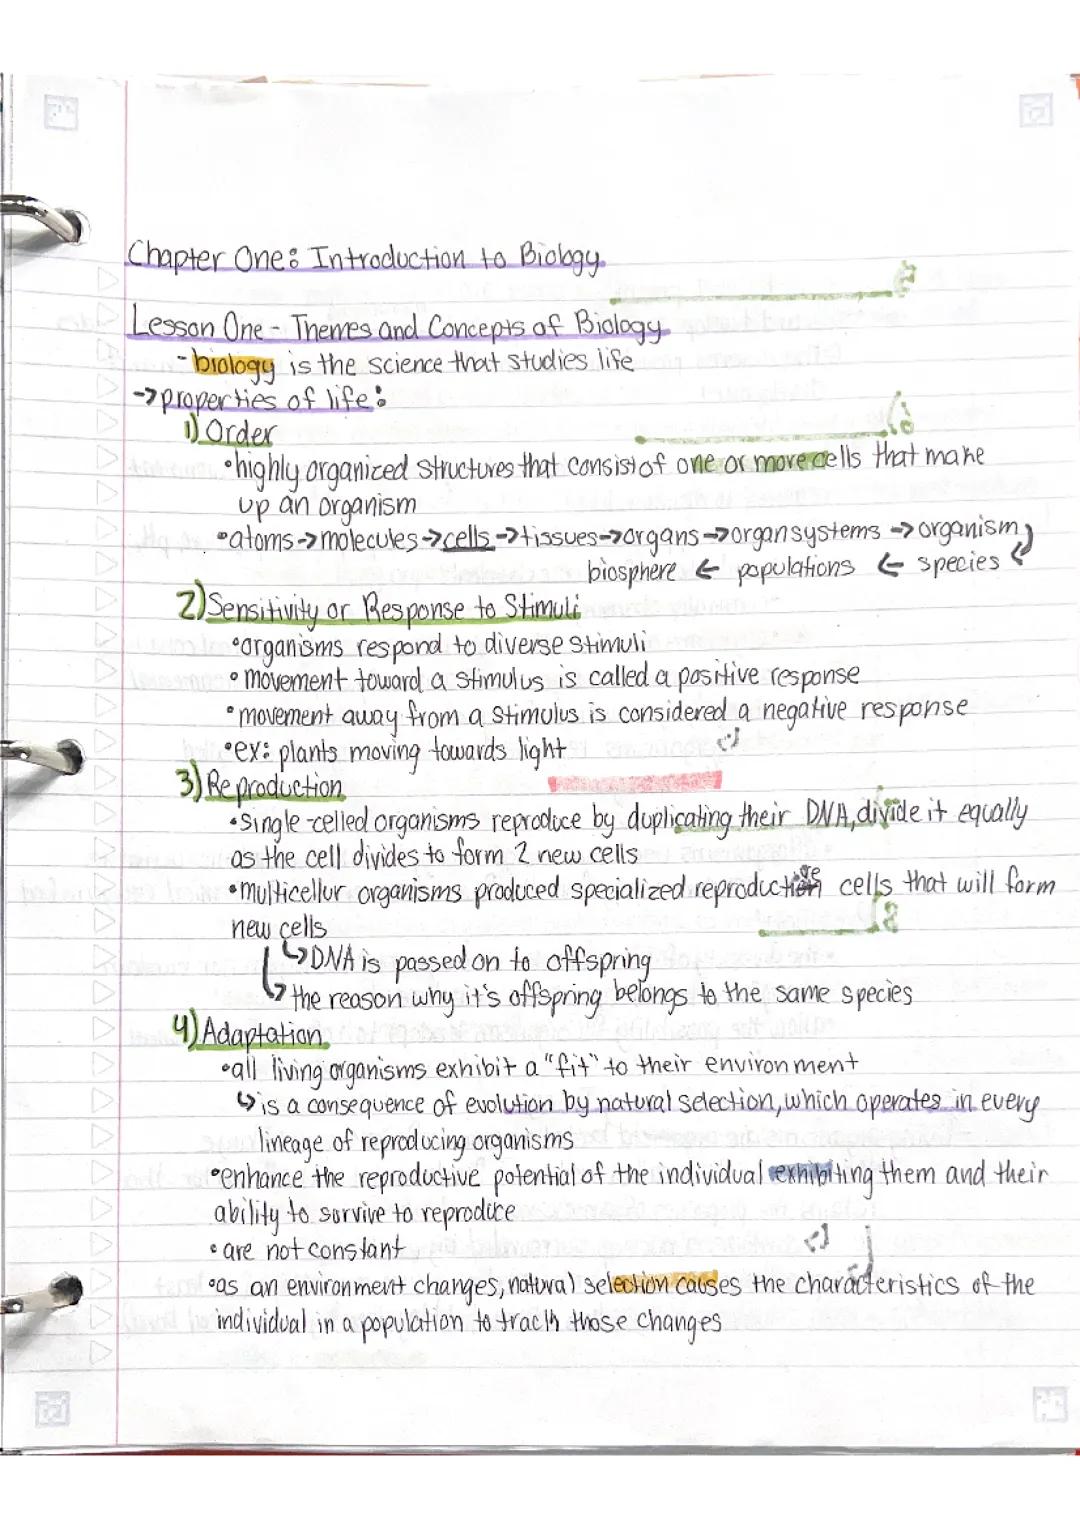 Chapter One: Introduction to Biology
Lesson One - Themes and Concepts of Biology
- biology is the science that studies life
→ properties of life:
1) Order
•highly organized structures that consist of one or more cells that make
up an organism
•atoms→molecules→cells→tissues→organs→organ systems→organism
biosphere ← populations ← species
2) Sensitivity or Response to Stimuli
•organisms respond to diverse stimuli
•movement toward a stimulus is called a positive response
•movement away from a stimulus is considered a negative response
•ex: plants moving towards light
3) Reproduction
•single-celled organisms reproduce by duplicating their DNA, divide it equally
as the cell divides to form 2 new cells
•multicellur organisms produced specialized reproductive cells that will form
new cells
↳DNA is passed on to offspring
↳the reason why it's offspring belongs to the same species
4) Adaptation
•all living organisms exhibit a "fit" to their environment
↳is a consequence of evolution by natural selection, which operates in every
lineage of reproducing organisms
•enhance the reproductive potential of the individual exhibiting them and their
ability to survive to reproduce
•are not constant
•as an environment changes, natural selection causes the characteristics of the
individual in a population to track those changes